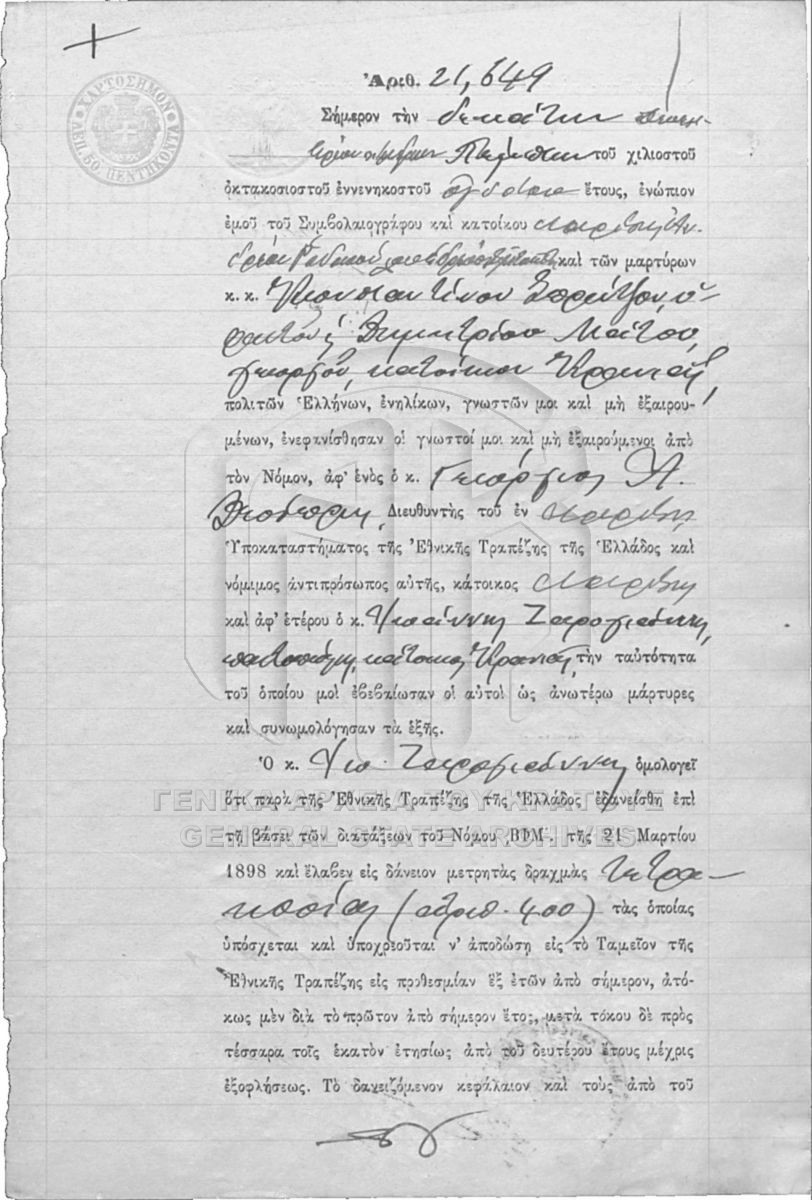 ΧΑΡΤΟΣΗΜΟΝ
ΛΕΠ. 50. ΠΕΝΤΗΚΟΝΤΑ
Ἀριθ. 21,649
Σήμερον τὴν δεκάτην
Πέμπτην τοῦ χιλιοστοῦ
ὀκτακοσιοστοῦ ἐννενηκοστοῦ ὀγδόου ἔτους, ἐνώπιον
ἐμοῦ τοῦ Συμβολαιογράφου καὶ κατοίκου Λαρίσης Ἀν-
δρέου καὶ τῶν μαρτύρων
κ. κ. Κωνσταντίνου
Δημητρίου
κατοίκων
πολιτῶν Ἑλλήνων, ἐνηλίκων, γνωστῶν μοι καὶ μὴ ἐξαιρου-
μένων, ἐνεφανίσθησαν οἱ γνωστοί μοι καὶ μὴ ἐξαιρούμενοι ἀπὸ
τὸν Νόμον, ἀφ' ἑνὸς ὁ κ. Γεώργιος Α.
Διευθυντὴς τοῦ ἐν Λαρίσῃ
Ὑποκαταστήματος τῆς Ἐθνικῆς Τραπέζης τῆς Ἑλλάδος καὶ
νόμιμος ἀντιπρόσωπος αὐτῆς, κάτοικος Λαρίσης
καὶ ἀφ' ἑτέρου ὁ κ. Ἰωάννης Ζαρογιάννης,
κάτοικος τὴν ταὐτότητα
τοῦ ὁποίου μοὶ ἐβεβαίωσαν οἱ αὐτοὶ ὡς ἀνωτέρω μάρτυρες
καὶ συνωμολόγησαν τὰ ἑξῆς.
Ὁ κ. Ἰω. Ζαρογιάννης ὁμολογεῖ
ὅτι παρὰ τῆς Ἐθνικῆς Τραπέζης τῆς Ἑλλάδος ἐδανείσθη ἐπὶ
ΓΕΝΙΚΑ ΑΡΧΕΙΑ ΤΟΥ ΚΡΑΤΟΥΣ
τῇ βάσει τῶν διατάξεων τοῦ Νόμου ͵ΒΦΜ΄ τῆς 21 Μαρτίου
GENERAL STATE ARCHIVES
1898 καὶ ἔλαβεν εἰς δάνειον μετρητὰς δραχμὰς τετρα-
κοσίας (ἀριθ. 400) τὰς ὁποίας
ὑπόσχεται καὶ ὑποχρεοῦται ν' ἀποδώσῃ εἰς τὸ Ταμεῖον τῆς
Ἐθνικῆς Τραπέζης εἰς προθεσμίαν ἓξ ἐτῶν ἀπὸ σήμερον, ἀτό-
κως μὲν διὰ τὸ πρῶτον ἀπὸ σήμερον ἔτος, μετὰ τόκου δὲ πρὸς
τέσσαρα τοῖς ἑκατὸν ἐτησίως ἀπὸ τοῦ δευτέρου ἔτους μέχρις
ἐξοφλήσεως. Τὸ δανειζόμενον κεφάλαιον καὶ τοὺς ἀπὸ τοῦ